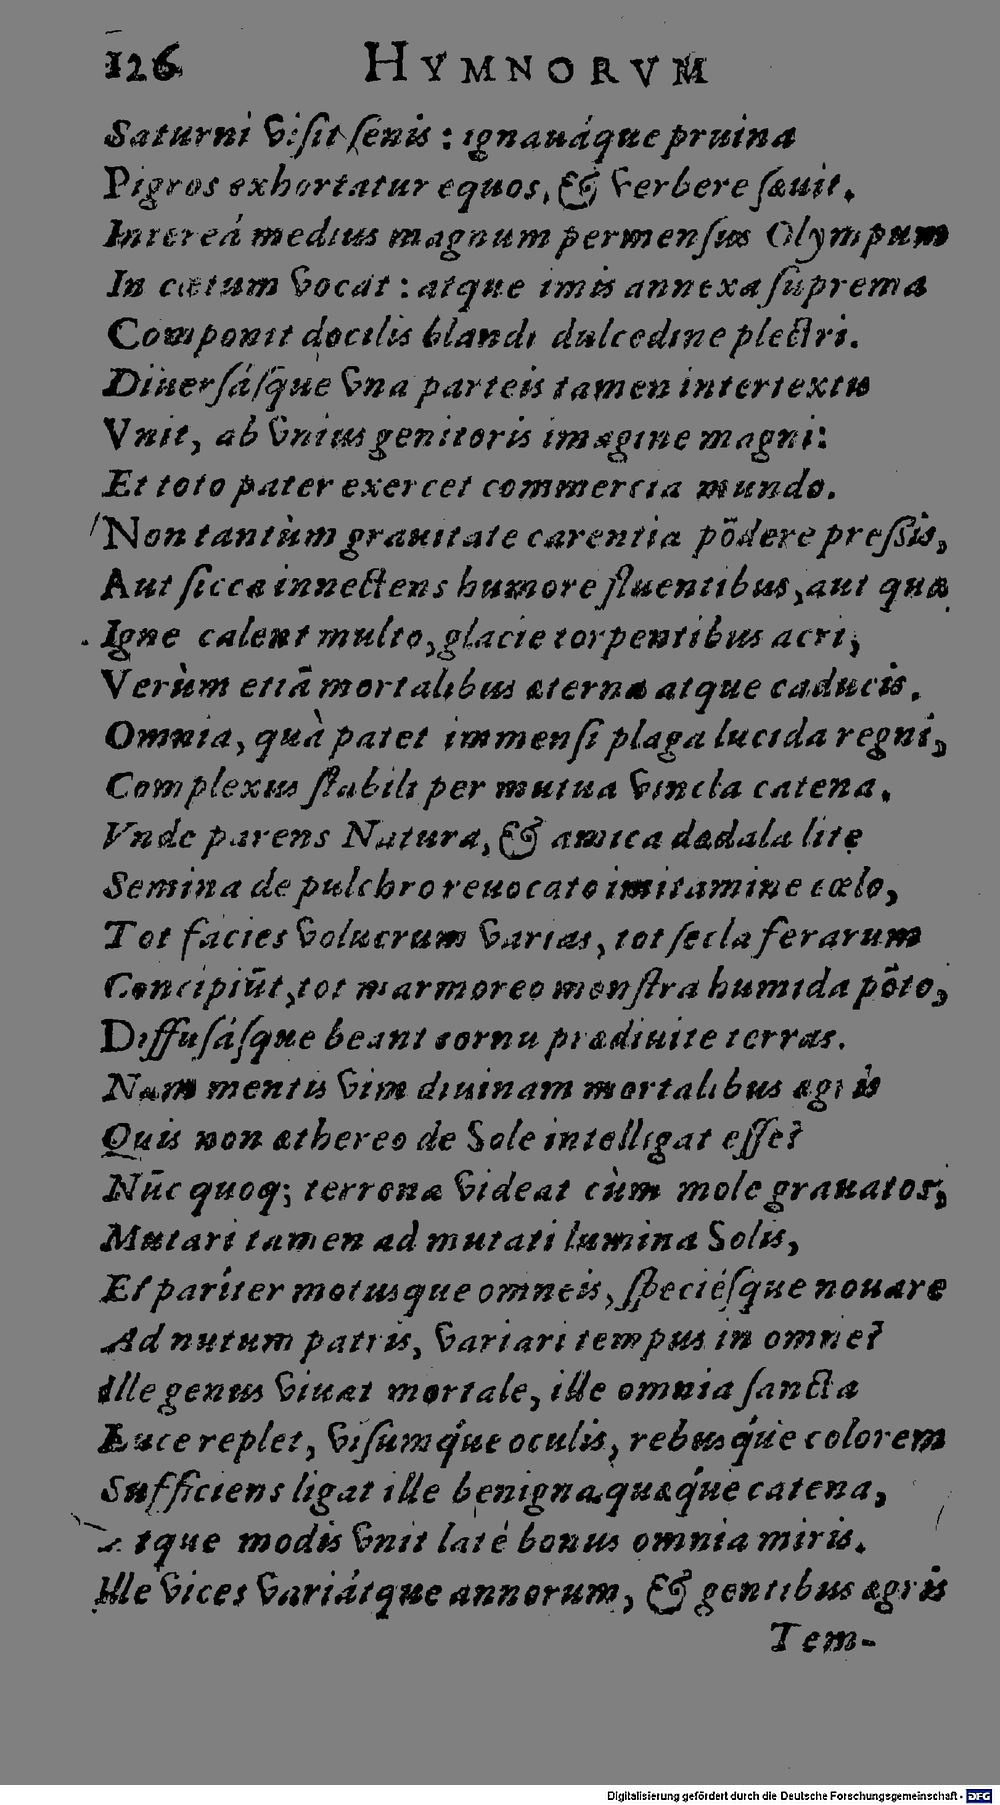 126 HYMNORVM
Saturni viſit ſenis : ignauáque pruina
Pigros exhortatur equos, & verbere ſæuit.
Intereá medius magnum permenſus Olympum
In cœtum vocat : atque imis annexa ſuprema
Componit docilis blandi dulcedine plectri.
Diuerſáſque vna parteis tamen intertextu
Vnit, ab vnius genitoris imagine magni:
Et toto pater exercet commercia mundo.
Non tantùm grauitate carentia põdere preſſis,
Aut ſicca innectens humore fluentibus, aut quæ
Igne calent multo, glacie torpentibus acri,
Verùm etiã mortalibus æterna atque caducis.
Omnia, quà patet immenſi plaga lucida regni,
Complexus ſtabili per mutua vincla catena.
Vnde parens Natura, & amica dædala lite
Semina de pulchro reuocato imitamine cœlo,
Tot facies volucrum varias, tot ſecla ferarum
Concipiũt, tot marmoreo monſtra humida põto,
Diffuſáſque beant cornu prædiuite terras.
Nam mentis vim diuinam mortalibus ægris
Quis non æthereo de Sole intelligat eſſe?
Nũc quoq; terrenæ videat cùm mole grauatos,
Mutari tamen ad mutati lumina Solis,
Et pariter motusque omneis, ſpeciéſque nouare
Ad nutum patris, variari tempus in omne?
Ille genus viuat mortale, ille omnia ſancta
Luce replet, viſumq́ue oculis, rebusq́ue colorem
Sufficiens ligat ille benigna quæq́ue catena,
Atque modis vnit laté bonus omnia miris.
Ille vices variátque annorum, & gentibus ægris
Tem-
Digitalisierung gefördert durch die Deutsche Forschungsgemeinschaft - DFG